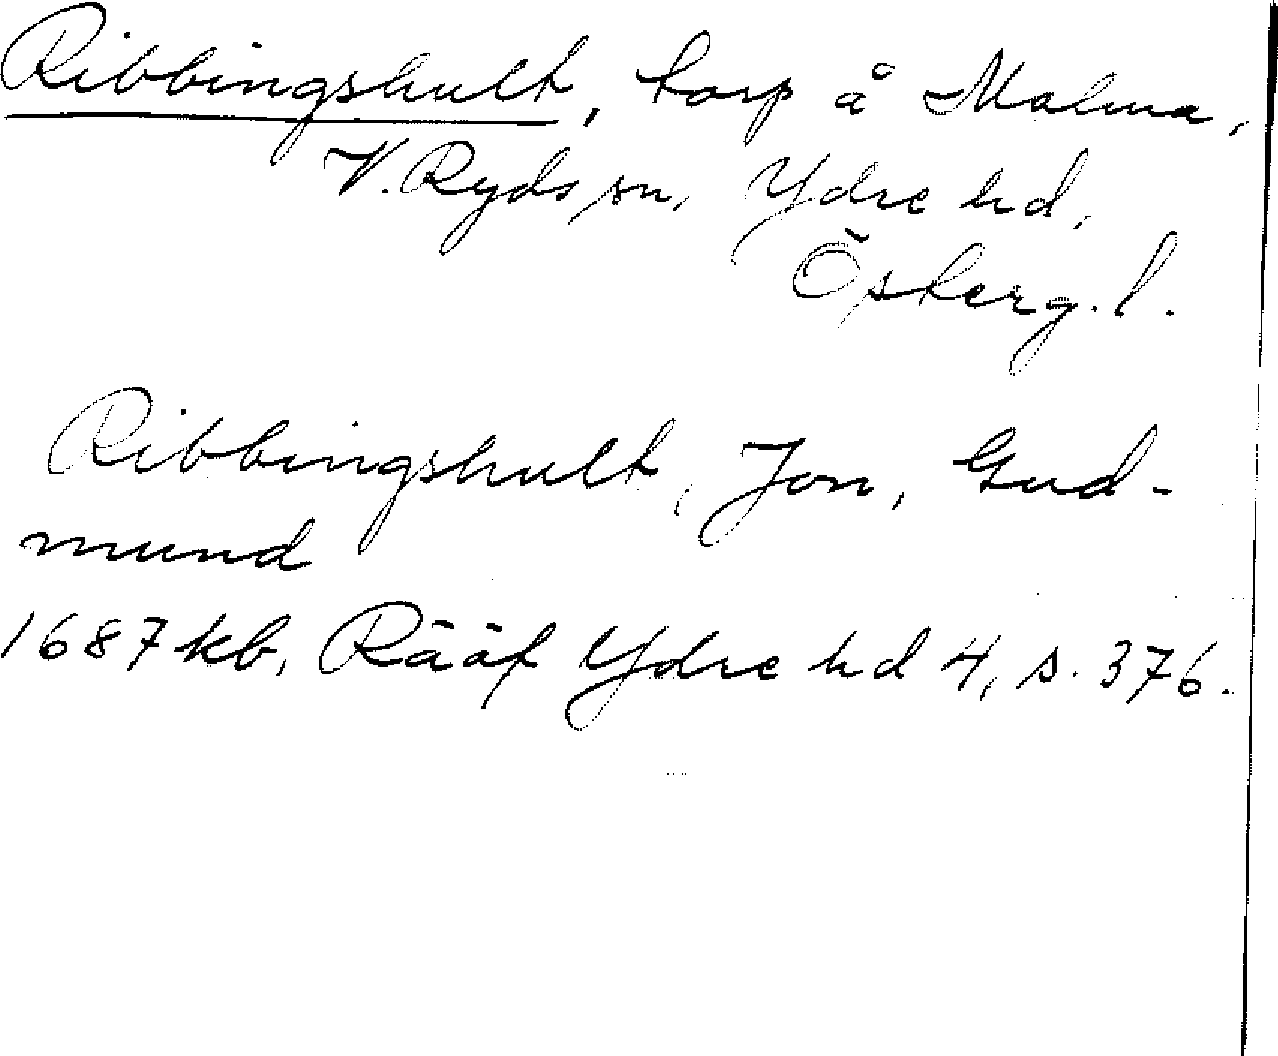 Ribbingshult, torp å Malma,
V. Ryds sn, Ydre hd,
Österg. l.
Ribbingshult, Jon, Gud-
mund
1687 kb, Rääf Ydre hd 4, s. 376.